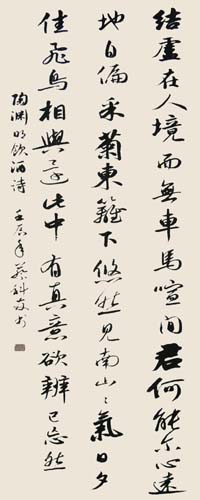 結廬在人境而無車馬喧问君何能尔心遠
地自偏采菊東籬下悠然見南山〻氣日夕
佳飛鳥相與還此中有真意欲辨已忘然
陶渊明飲酒诗 壬辰年蔡科书